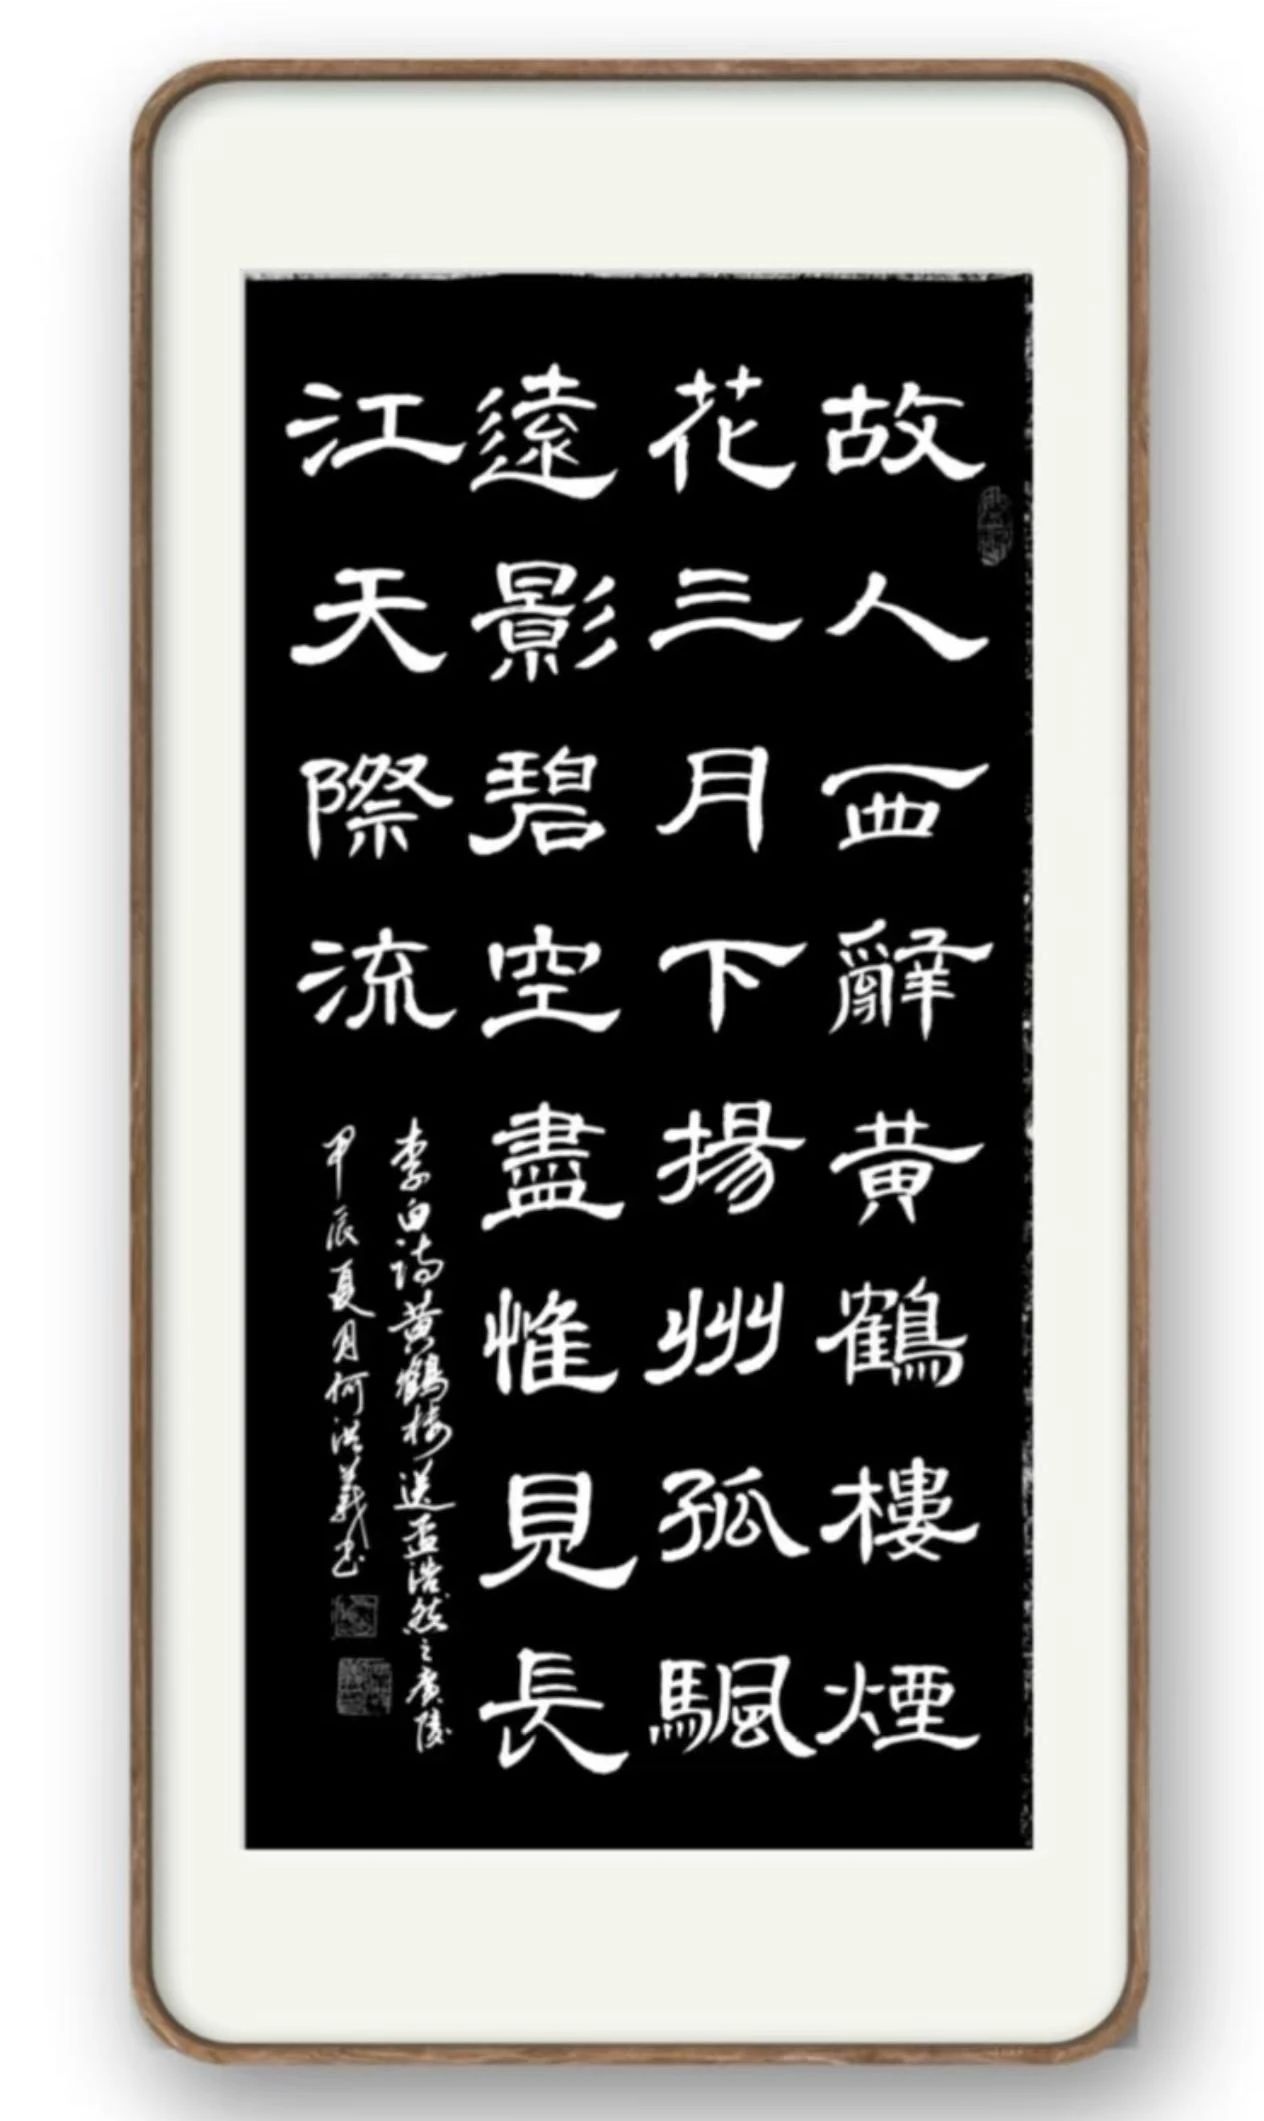 故人西辭黃鶴樓煙
花三月下揚州孤颿
遠影碧空盡惟見長
江天際流
李白詩黃鶴樓送孟浩然之廣陵
甲辰夏月何洪義書